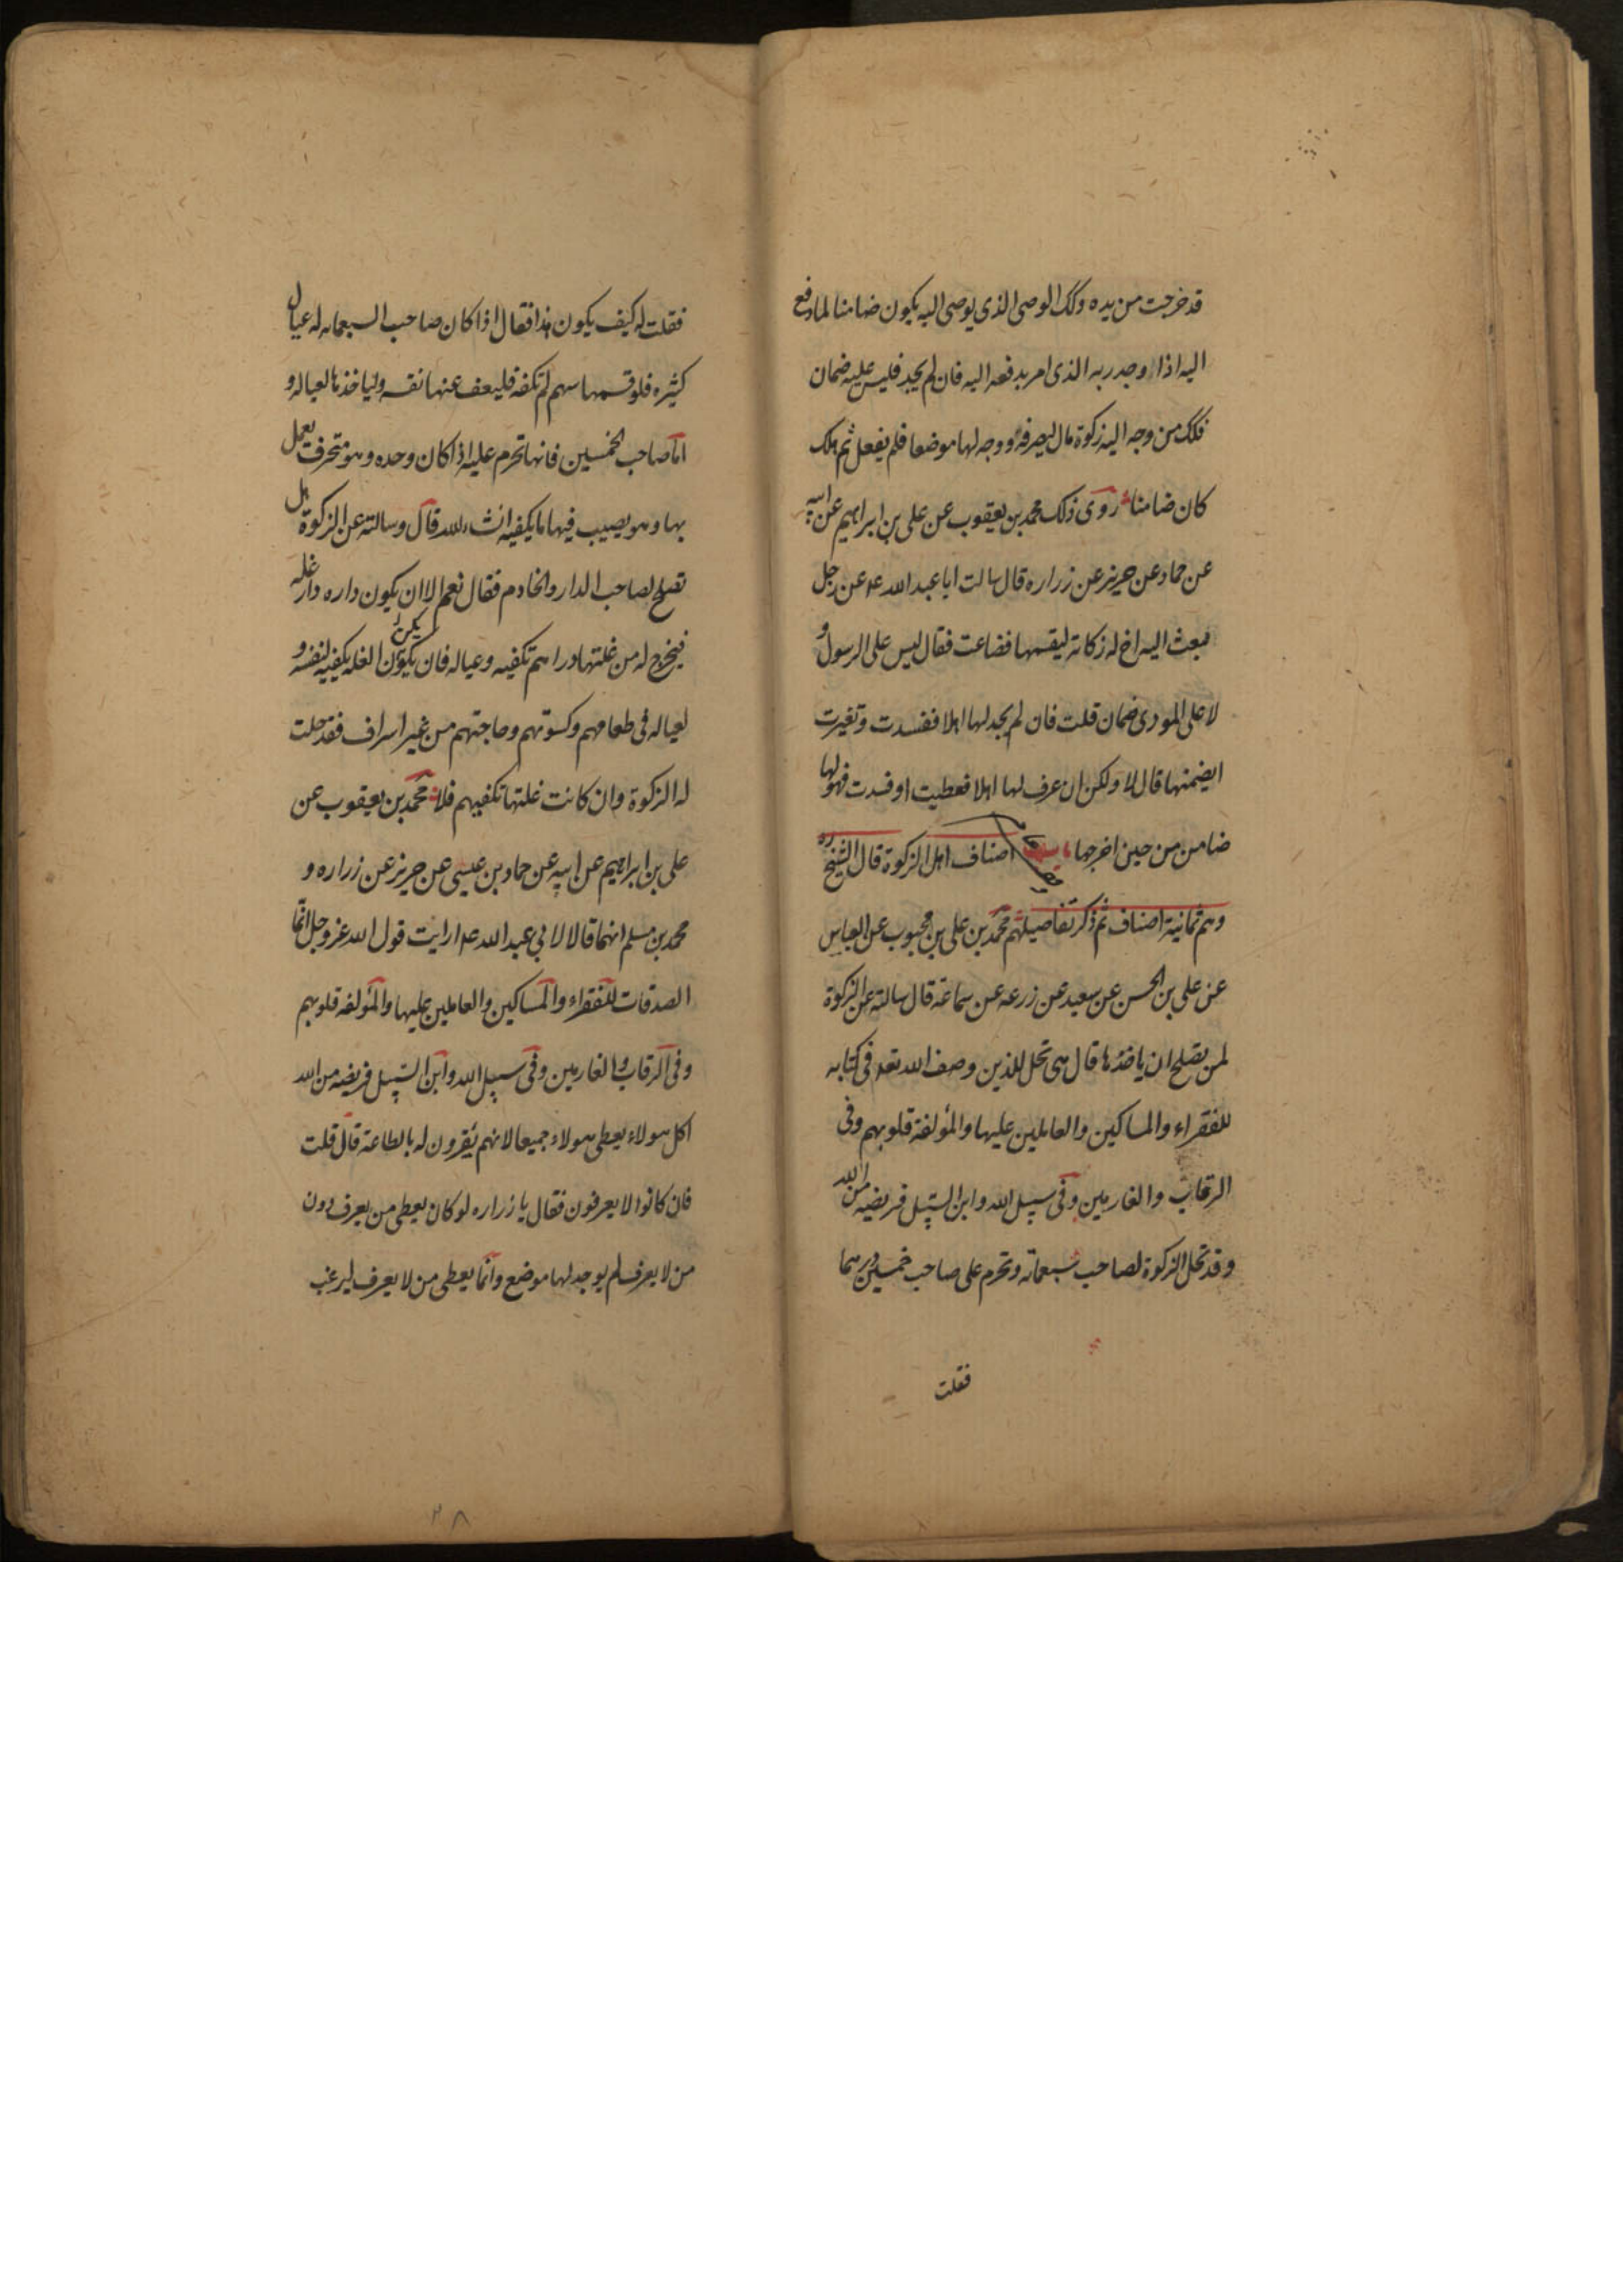 قد خرجت من يده وكك الوصى الذى يوصى اليه يكون ضامنا لما دفع
اليه اذا وجد ربه الذى امر بدفعه اليه فان لم يجد فليس عليه ضمان
فكك من وجه اليه زكوة مال ليصرفه ووجه لها موضعا فلم يفعل ثم هلك
كان ضامنا روى ذلك محمد بن يعقوب عن على بن ابراهيم عن ابيه
عن حماد عن حريز عن زراره قال سالت ابا عبد الله ع عن رجل
فبعث اليه اخ له زكاته ليقسمها فضاعت فقال ليس على الرسول و
لا على المودى ضمان قلت فان لم يجد لها اهلا ففسدت وتغيرت
ايضمنها قال لا ولكن ان عرف لها اهلا فعطبت او فسدت فهو لها
ضامن من حين اخرجها باب اصناف اهل الزكوة قال الشيخ ره
وهم ثمانية اصناف ثم ذكر تفاصيلهم محمد بن على بن محبوب عن العباس
عن على بن الحسن عن سعيد عن زرعه عن سماعة قال سالته عن الزكوة
لمن يصلح ان ياخذها قال هى تحل للذين وصف الله تعه فى كتابه
للفقراء والمساكين والعاملين عليها والمؤلفة قلوبهم وفى
الرقاب والغارمين وفى سبيل الله وابن السبيل فريضه من الله
وقد تحل الزكوة لصاحب سبعمائه وتحرم على صاحب خمسين درهما
فقلت
فقلت له كيف يكون هذا فقال اذا كان صاحب السبعمايه له عيال
كثيره فلو قسمها بينهم لم تكفه فليعف عنها نفسه ولياخذها لعياله و
اما صاحب الخمسين فانها تحرم عليه اذا كان وحده وهو محترف يعمل
بها وهو يصيب فيها ما يكفيه انشاء الله قال وسالته عن الزكوة هل
تصلح لصاحب الدار والخادم فقال نعم الا ان يكون داره دار غله
فيخرج له من غلتها دراهم تكفيه وعياله فان لم يكن الغله يكفيه لنفسه و
لعياله فى طعامهم وكسوتهم وحاجتهم من غير اسراف فقد حلت
له الزكوة وان كانت غلتها تكفيهم فلا محمد بن يعقوب عن
على بن ابراهيم عن ابيه عن حماد بن عيسى عن حريز عن زراره و
محمد بن مسلم انهما قالا لابى عبد الله ع ارايت قول الله عز وجل انما
الصدقات للفقراء والمساكين والعاملين عليها والمؤلفه قلوبهم
وفى الرقاب والغارمين وفى سبيل الله وابن السبيل فريضه من الله
اكل هولاء يعطى هولاء جميعا لانهم يقرون له بالطاعة قال قلت
فان كانوا لا يعرفون فقال يا زراره لو كان يعطى من يعرف دون
من لا يعرف لم يوجد لها موضع وانما يعطى من لا يعرف ليرغب
٢٨